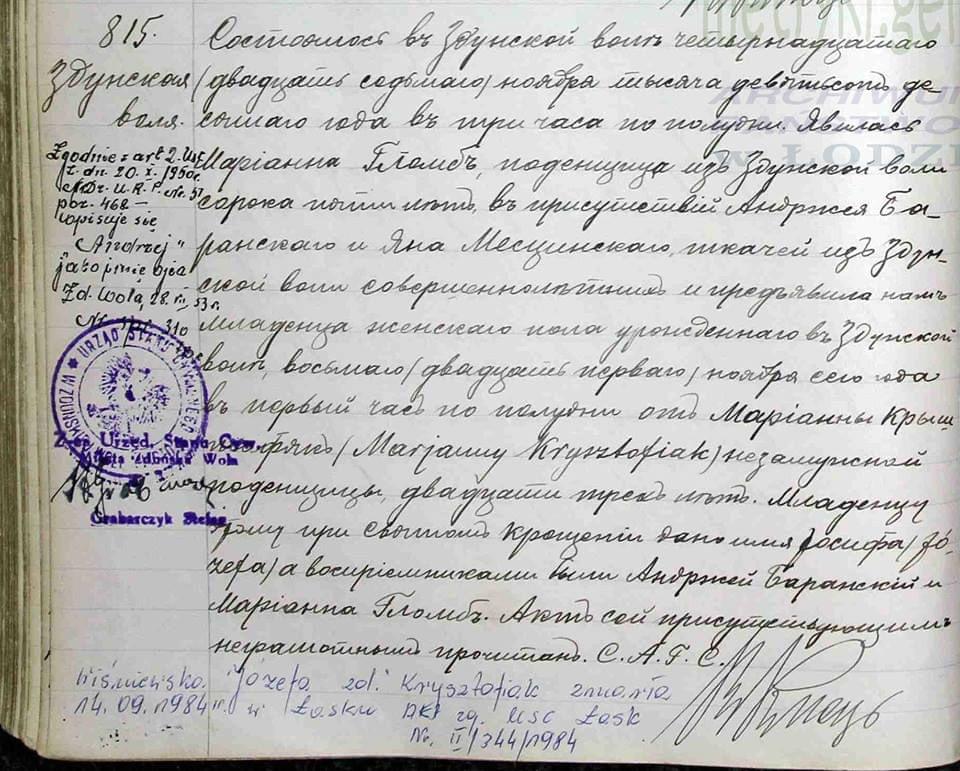 815.
Здунская
воля.
Состоялось въ Здунской воли четырнадцатаго
(двадцать седьмаго) ноября тысяча девятьсотъ де-
сятаго года въ три часа по полудни. Явилась
Маріанна Гломбъ, поденщица изъ Здунской воли
сорока пяти лѣтъ, въ присутствіи Анджея Ба-
ранскаго и Яна Месцинскаго, ткачей изъ Здун-
ской воли совершеннолѣтнихъ и предъявила намъ
младенца женскаго пола урожденнаго въ Здунской
воли, восьмаго (двадцать перваго) ноября сего года
въ первый часъ по полудни отъ Маріанны Крыш-
тофякъ (Marjanny Krysztofiak) незамужной
поденщицы, двадцати трехъ лѣтъ. Младенцу
этому при святомъ крещеніи дано имя Іосифа (Jó-
zefa) а воспріемниками были Анджей Баранскій и
Маріанна Гломбъ. Актъ сей присутствующимъ
неграмотнымъ прочитанъ. С. А. Г. С.
Zgodnie z art 2. Ust
z dn. 20. X. 1950r.
Dz. U. R. P. Nr. 51
poz. 468 –
wpisuje się
„Andrzej"
jako imię ojca
Zd. Wola, 28. 53 r.
Nr. 310
URZĄD STANU CYWILNEGO
Z-ca Urzęd. Stanu Cyw.
Miasta Zduńska Wola
Grabarczyk Stefan
Wiśniewska Józefa zd. Krysztofiak zmarła
14.09.1984 r. w Łasku Akt zg. USC Łask
Nr. II/344/1984
ARCHIWUM
PAŃSTWO
w ŁODZI